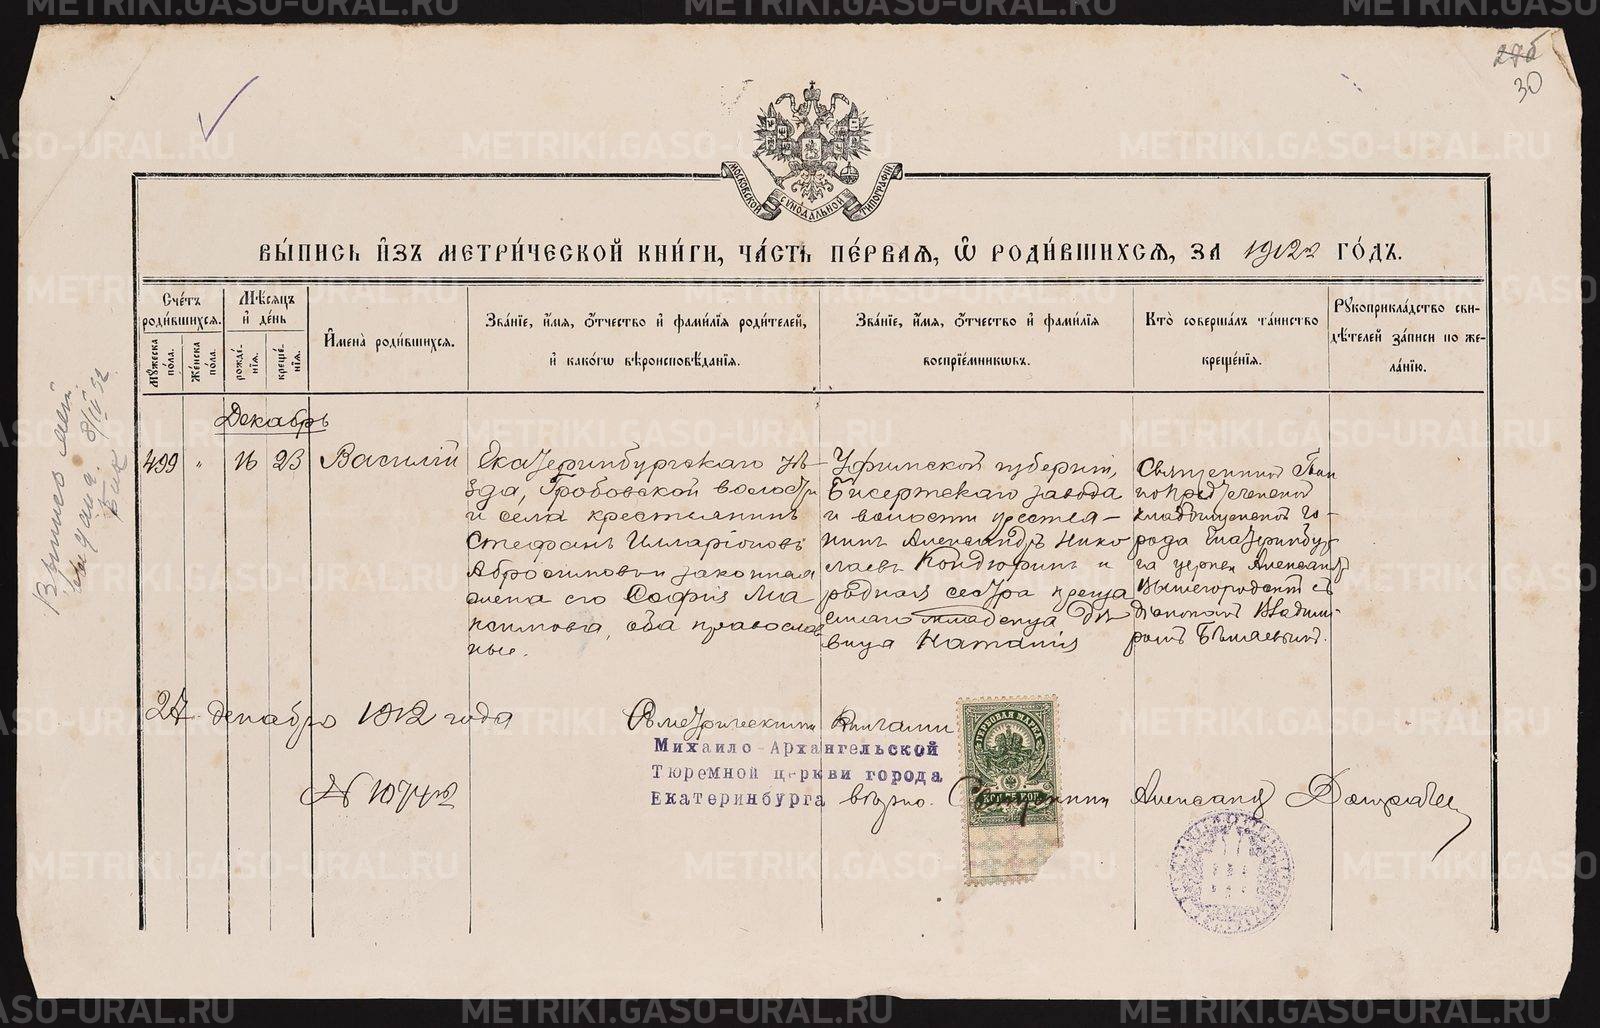 METRIKI.GASO-URAL.RU
278
30
МОСКОВСКОЙ СѴНОДАЛЬНОЙ ТИПОГРАФІИ
ВЫ́ПИСЬ И҆ЗЪ МЕТРИ́ЧЕСКОЙ КНИ́ГИ, ЧА́СТЬ ПЕ́РВАЯ, Ѡ҆ РОДИ́ВШИХСЯ, ЗА 1912 ГО́ДЪ.
Сче́тъ роди́вшихся.
Мꙋжеска по́ла.
Же́нска по́ла.
Мѣ́сяцъ и҆ де́нь
рожде́нїя.
креще́нїя.
И҆мена̀ роди́вшихся.
Зва́нїе, и҆́мя, ѻ҆́тчество и҆ фами́лїя роди́телей,
и҆ како́гѡ вѣроисповѣ́данїя.
Зва́нїе, и҆́мя, ѻ҆́тчество и҆ фами́лїя
воспрїе́мниковъ.
Кто̀ соверша́лъ та́инство
креще́нїя.
Рꙋкоприкла́дство сви-
дѣ́телей за́писи по же-
ла́нїю.
Декабрь
499 " 16 23 Василій
Екатеринбургскаго уѣ-
зда, Гробовской волости
и села крестьянинъ
Стефанъ Илларіоновъ
Абросимовъ и законная
жена его Софія Ма-
ксимова, оба православ
ные.
Уфимской губерніи,
Бисертскаго завода
и волости крестья-
нинъ Александръ Нико
лаевъ Кондюринъ и
родная сестра креща
емаго младенца дѣ
вица Наталія
Священникъ Іоан
но-Предтеченской
кладбищенской го-
рода Екатеринбур
га церкви Александръ
Вышегородскій съ
діакономъ Владими-
ромъ
27 декабря 1912 года
№ 1074
Съ метрическими книгами
Михаило-Архангельской
Тюремной церкви города
Екатеринбурга вѣрно. Священникъ Александръ
ГЕРБОВАЯ МАРКА
КОП. 75 КОП.